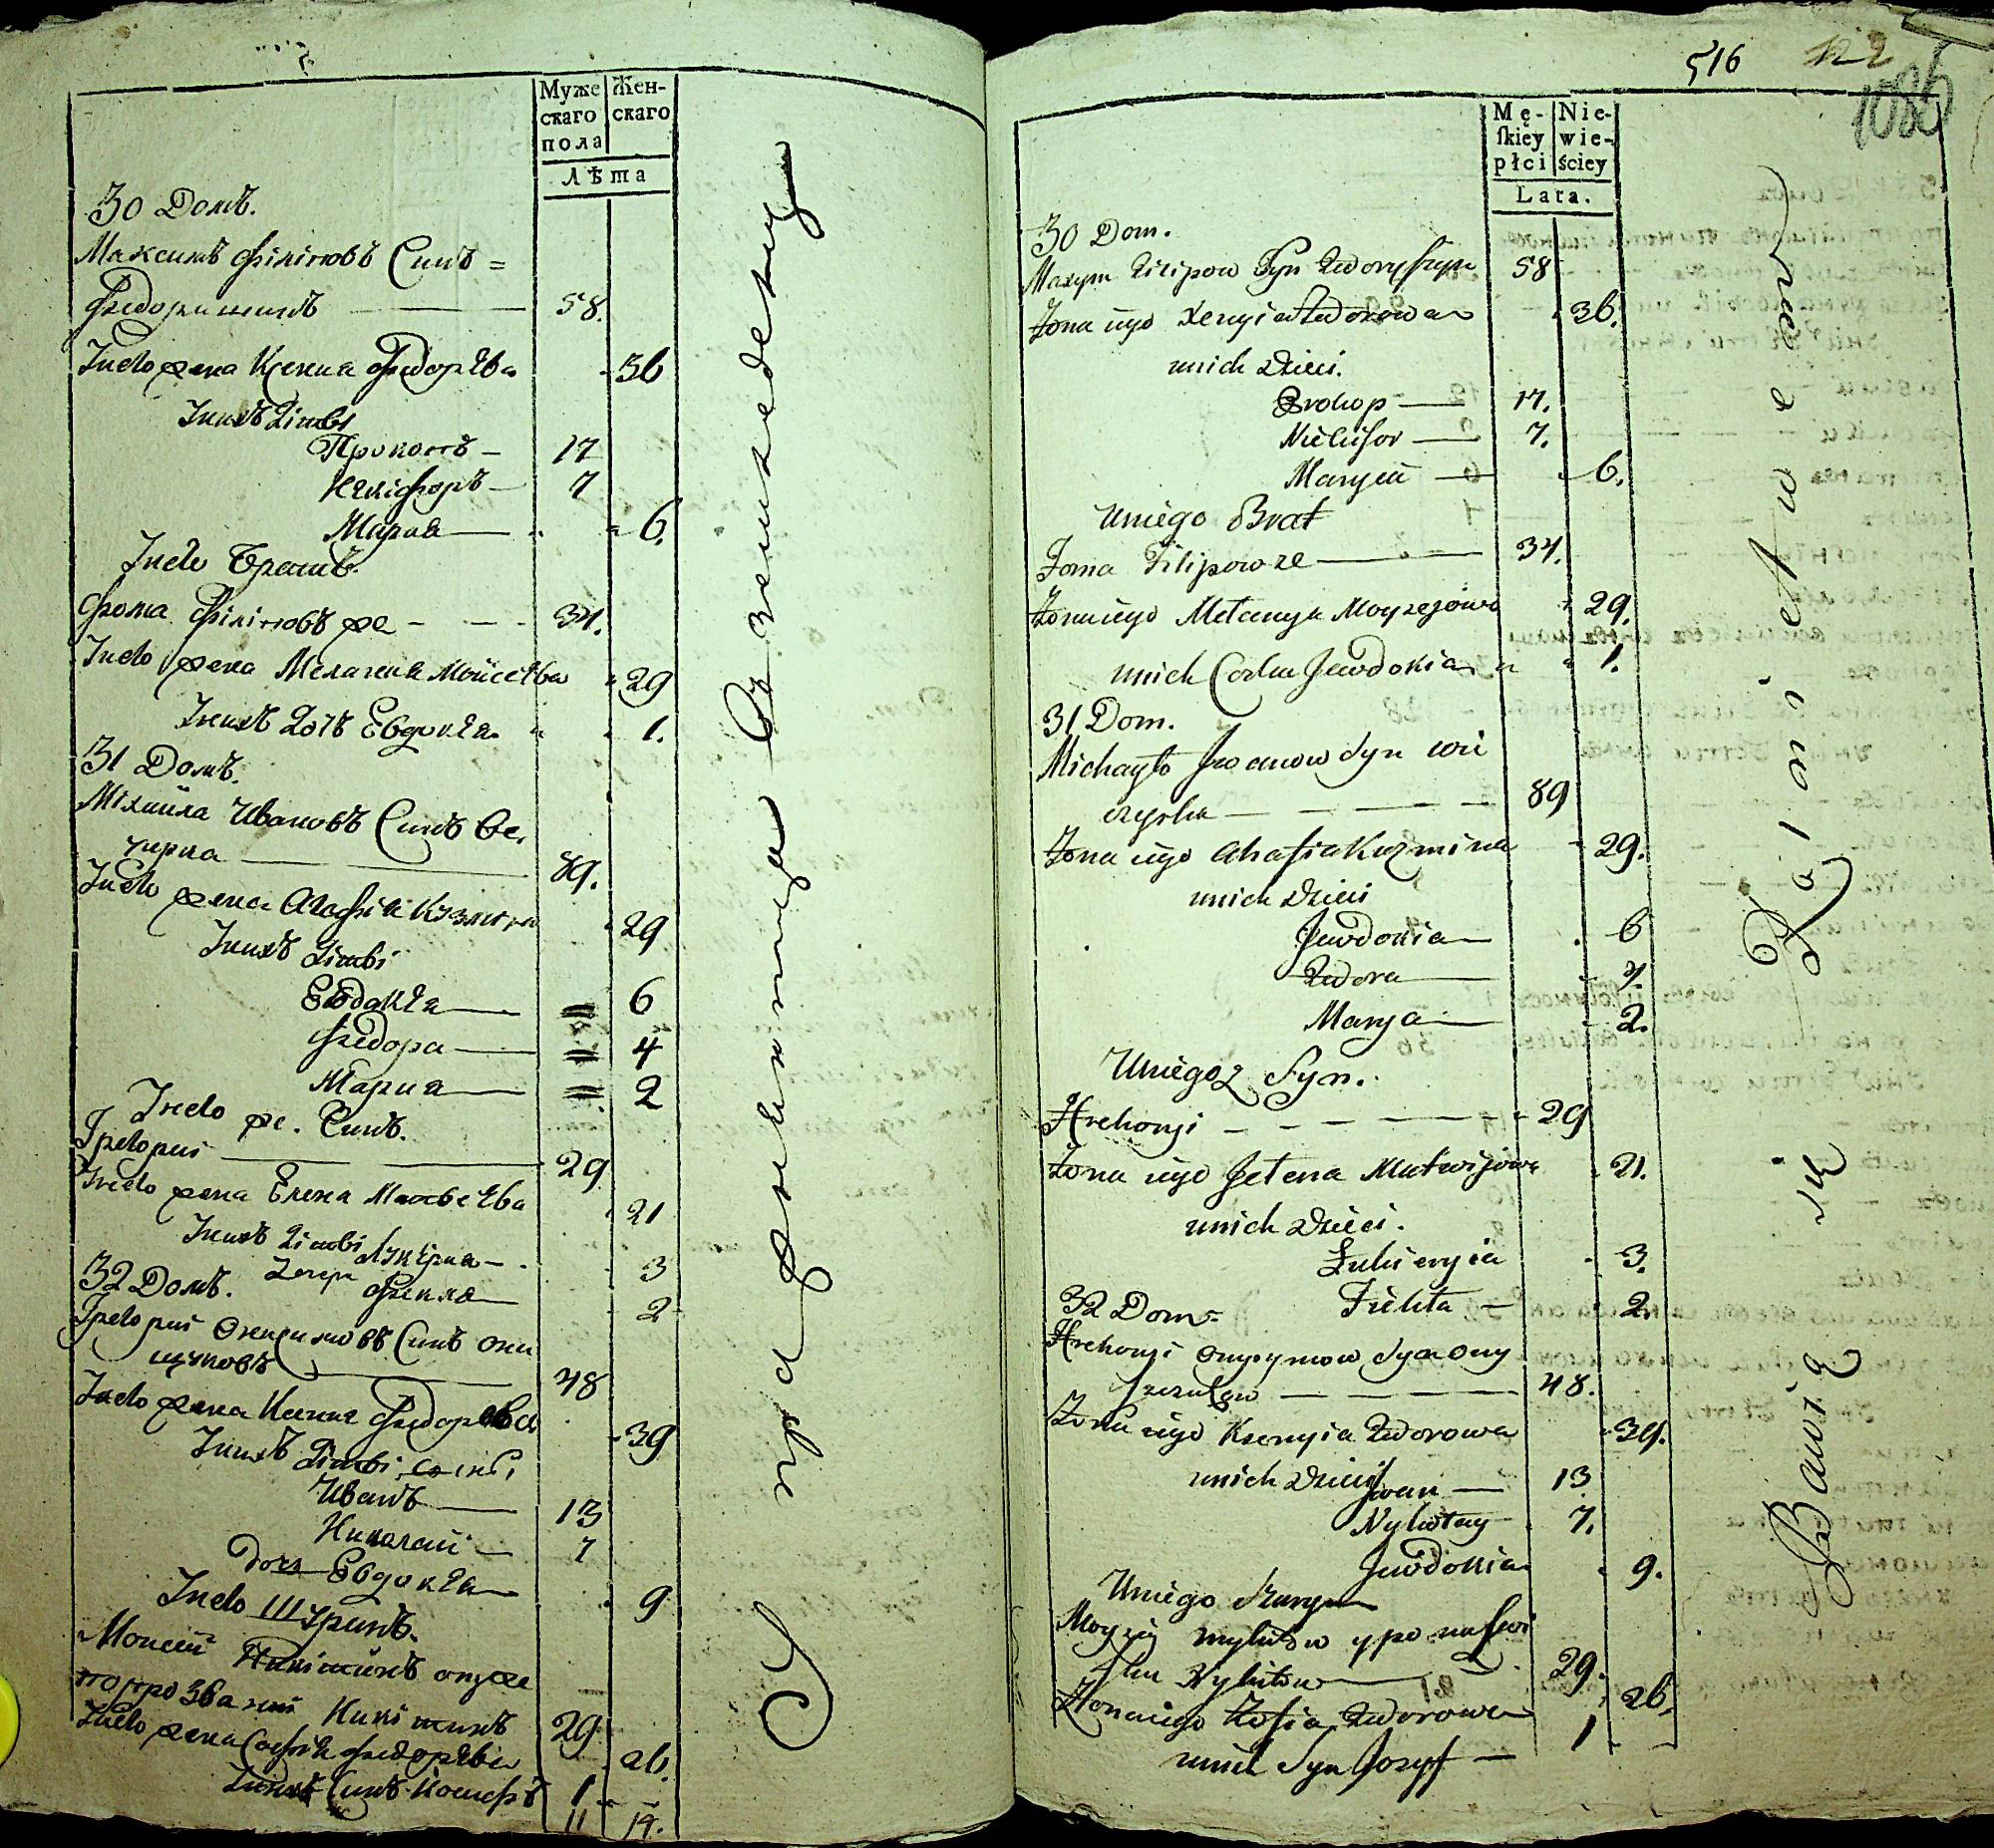 Муже
скаго
пола
Жен-
скаго
Лѣта
30 Домъ.
Максимъ Філіповъ Синъ =
Федоришинъ 58.
Інего жена Ксения Федорѣва 36
Інихъ Діти
Прокопъ 17
Нікіфоръ 7
Мария 6.
Інего Братъ.
Фома Філіповъ же 34.
Інего жена Меланія Мойсеѣва 29
Інихъ Дочъ Евдокѣя 1.
31 Домъ.
Міхайла Ивановъ Синъ Ве,
черка 89.
Інего жена Агафія Кузмина 29
Інихъ Діти
Евдокѣя 6
Федора 4
Мария 2
Інего же. Синъ.
Григорий 29
Інего жена Елена Матвеѣва 21
Інихъ Діти Лукѣрия 3
Фекла 2
32 Домъ.
Григорий Онисимовъ Синъ Они
щуковъ 48
Інего жена Ксения Федорѣва 39
Інихъ Діти
Иванъ 13
Николай 7
Дочъ Евдокѣя 9
Інего Шуринъ.
Моисей Нікітинъ онже
попрозванию Нікітинъ 29
Інего жена Софія Федорѣва 26.
Інихъ Синъ Иосифъ 1
11 14.
516
1086
Mę-
ſkiey
płci
Nie-
wie-
ściey
Lata.
30 Dom.
Maxym Filipow Syn Fedoryszyn 58
Zona iego Xenyia Fedorowa 36.
unich Dzieci.
Prokop 17.
Nikifor 7.
Marya 6.
Uniego Brat
Foma Filipow ze 34.
Zona iego Melanya Moyzejowa 29.
unich Corka Jewdokia 1.
31 Dom.
Michayło Jwanow Syn wie
czyrka 89
Zona iego Ahafia Kuzmina 29.
unich Dzieci
Jewdokia 6
Fedora 4.
Marya 2.
Uniegoz Syn.
Hrehoryi 29
Zona iego Jelena Matwijowa 21.
unich Dzieci.
Łukieryia 3.
Fiekła 2.
32 Dom
Hrehoryi Onysymow Syn Ony
szczukow 48.
Zona iego Ksenyia Fedorowa 39.
unich Dzieci Jwan 13
Nykołay 7.
Jewdokia 9.
Uniego Szuryn
29.
Zona iego Zofia Fedorowa 26.
unich Syn Jozyf 1